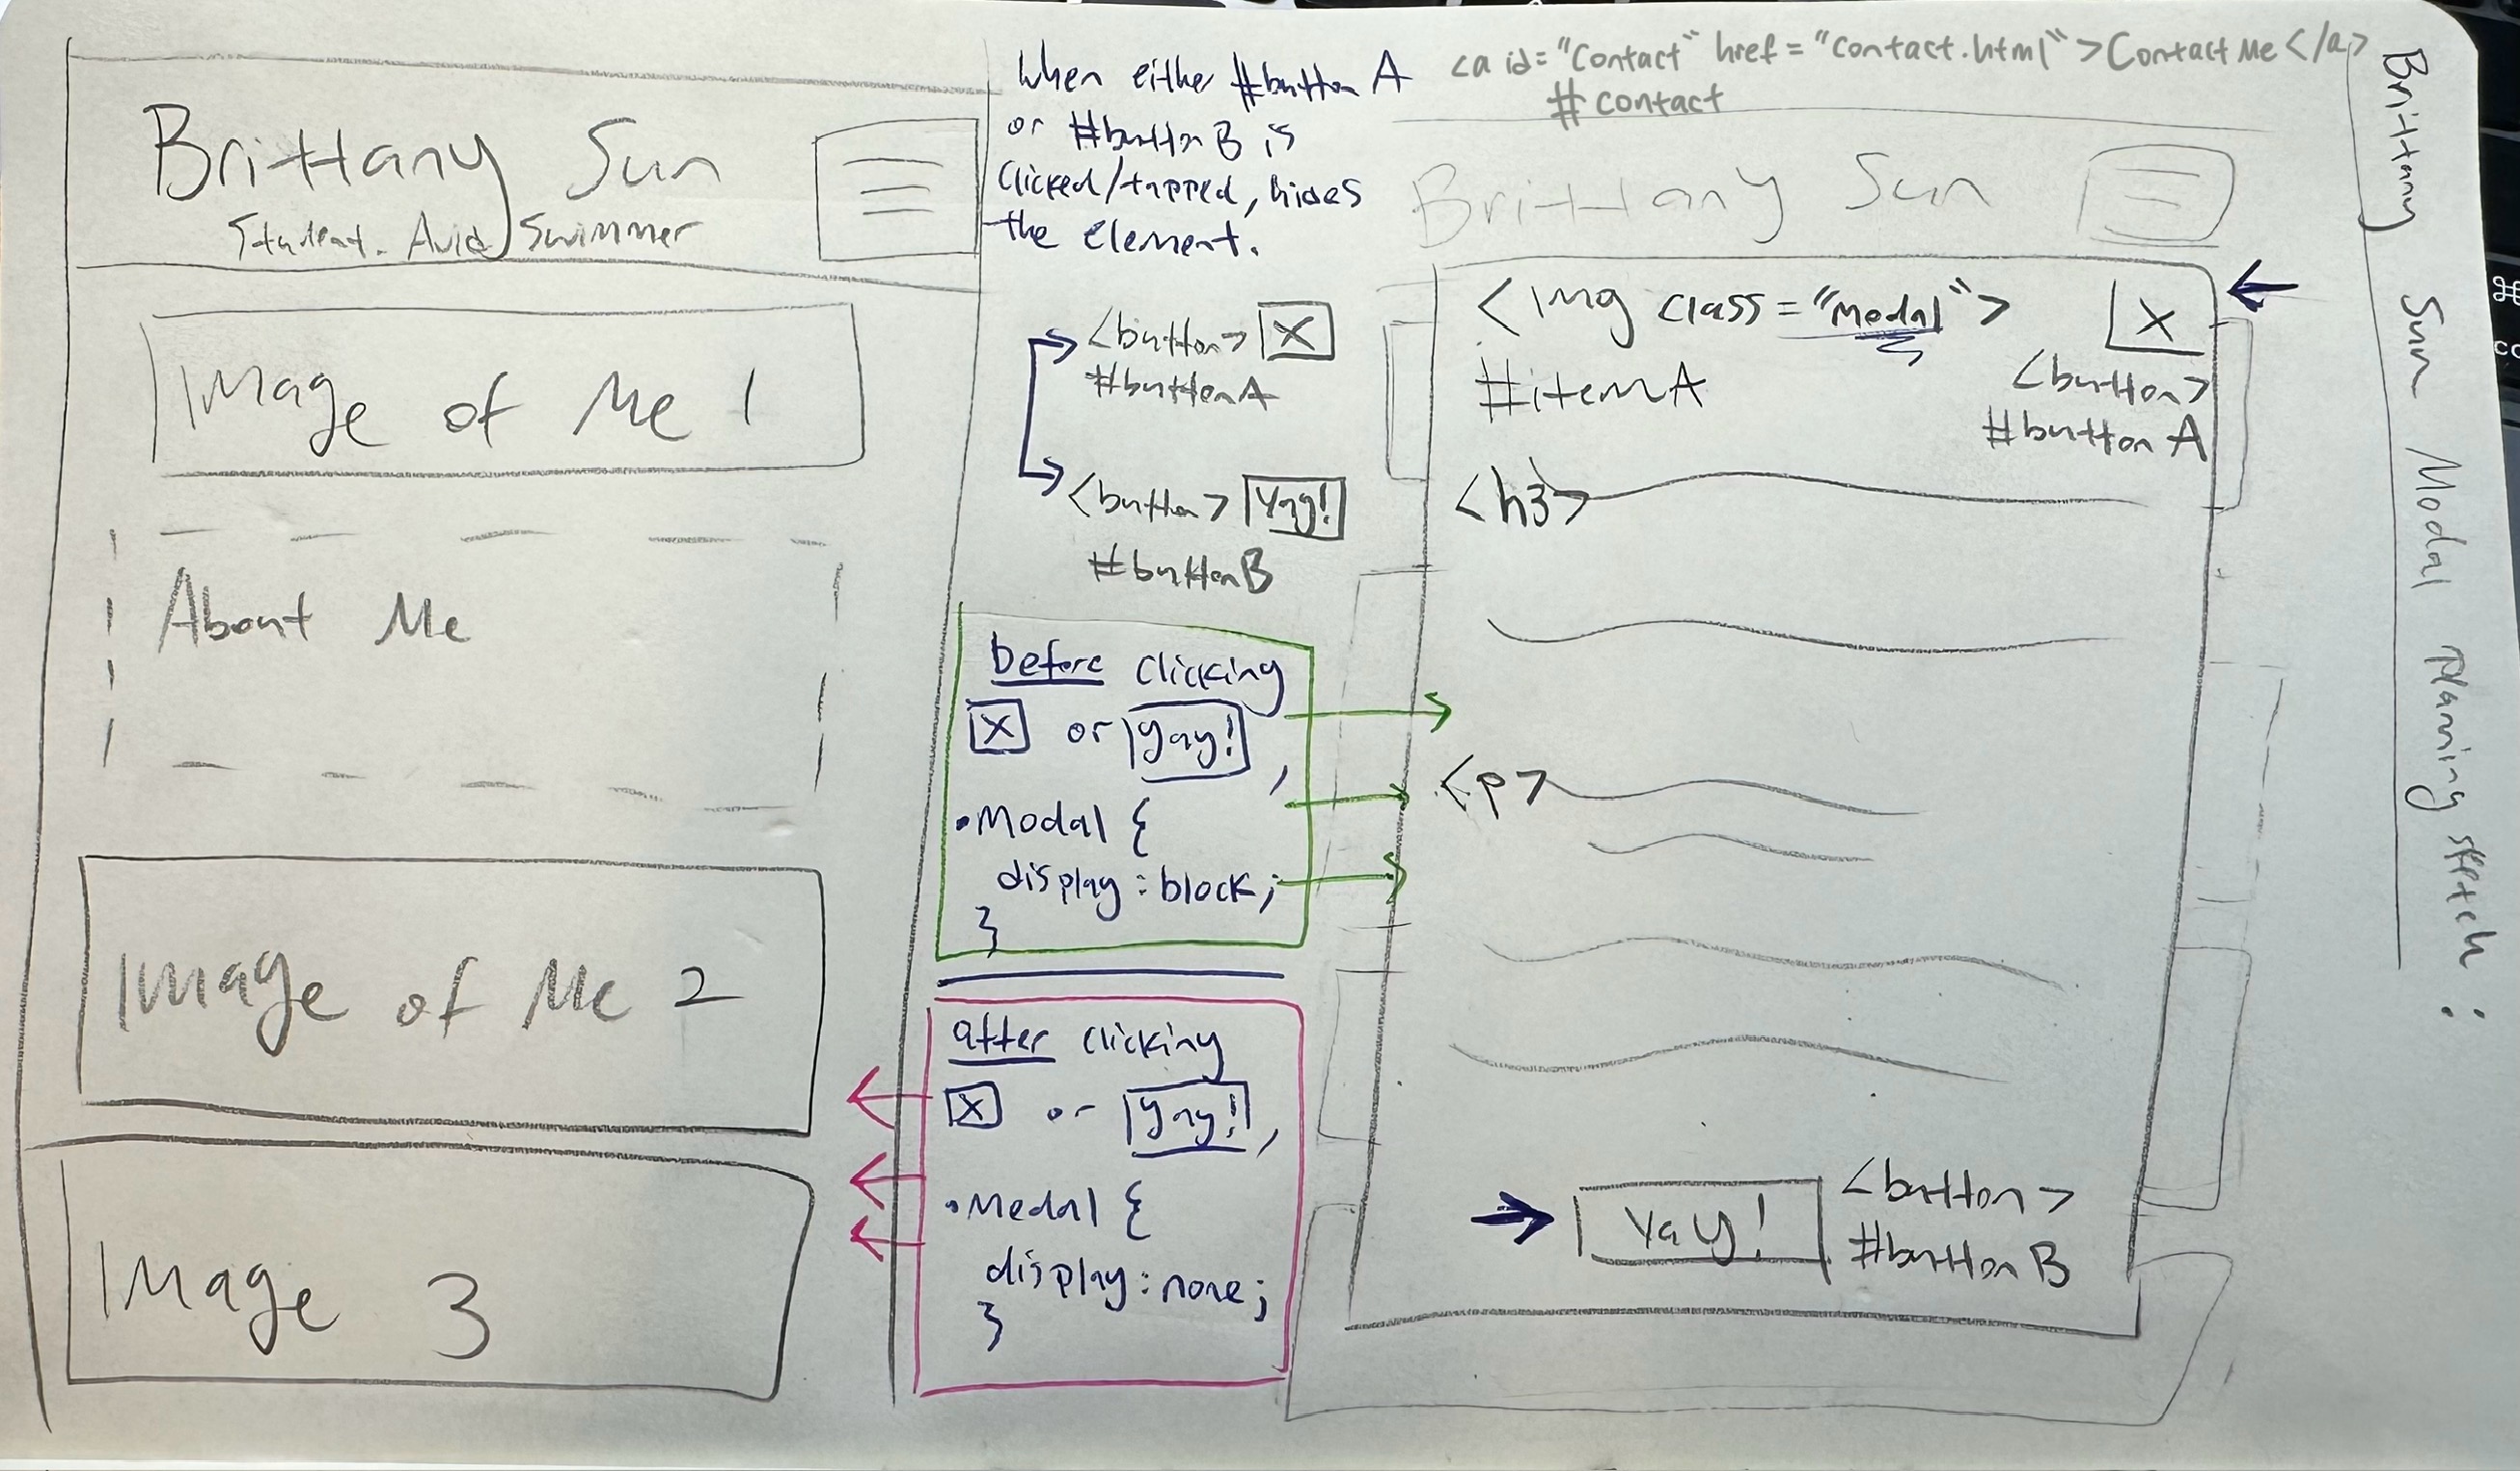 Brittany Sun
Student. Avid Swimmer
Image of Me 1
About Me
Image of Me 2
Image 3
When either #button A
or #button B is
clicked/tapped, hides
the element.
<button> X
#buttonA
<button> Yay!
#buttonB
before clicking
X or Yay!,
.Modal {
display: block;
}
after clicking
X or Yay!,
.Modal {
display: none;
}
<a id="Contact" href="contact.html">Contact Me</a>
#contact
Brittany Sun
<img class="Modal">
X
#itemA
<button>
#button A
<h3>
<p>
Yay!
<button>
#button B
Brittany Sun Modal planning sketch:
⌘